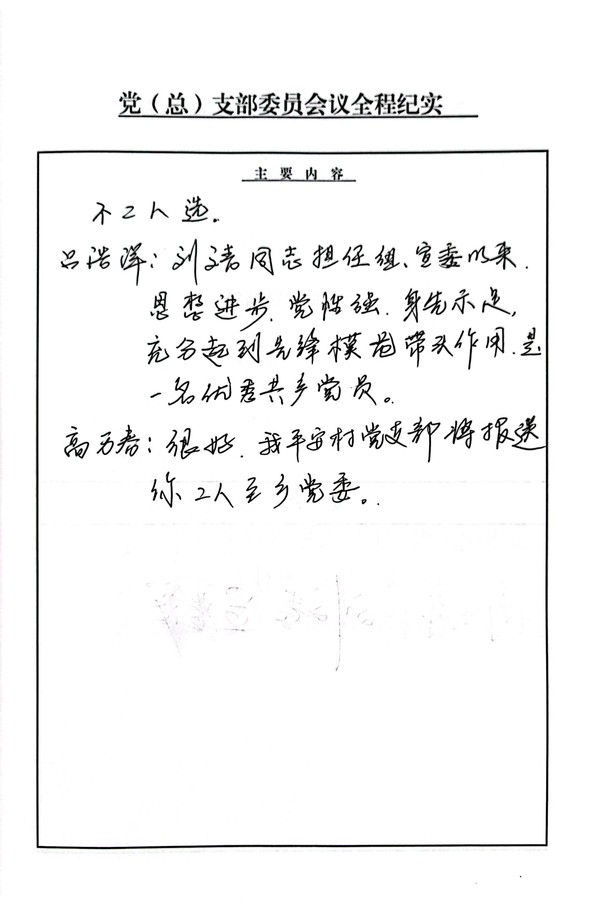 党（总）支部委员会议全程纪实
主要内容
不二人选。
吕浩洋：刘靖同志担任组、宣委以来.
思想进步.党性强.身先示足,
充分起到先锋模范带头作用.是
一名优秀共产党员。
高万春：很好.我平安村党支部将报送
你2人至乡党委。